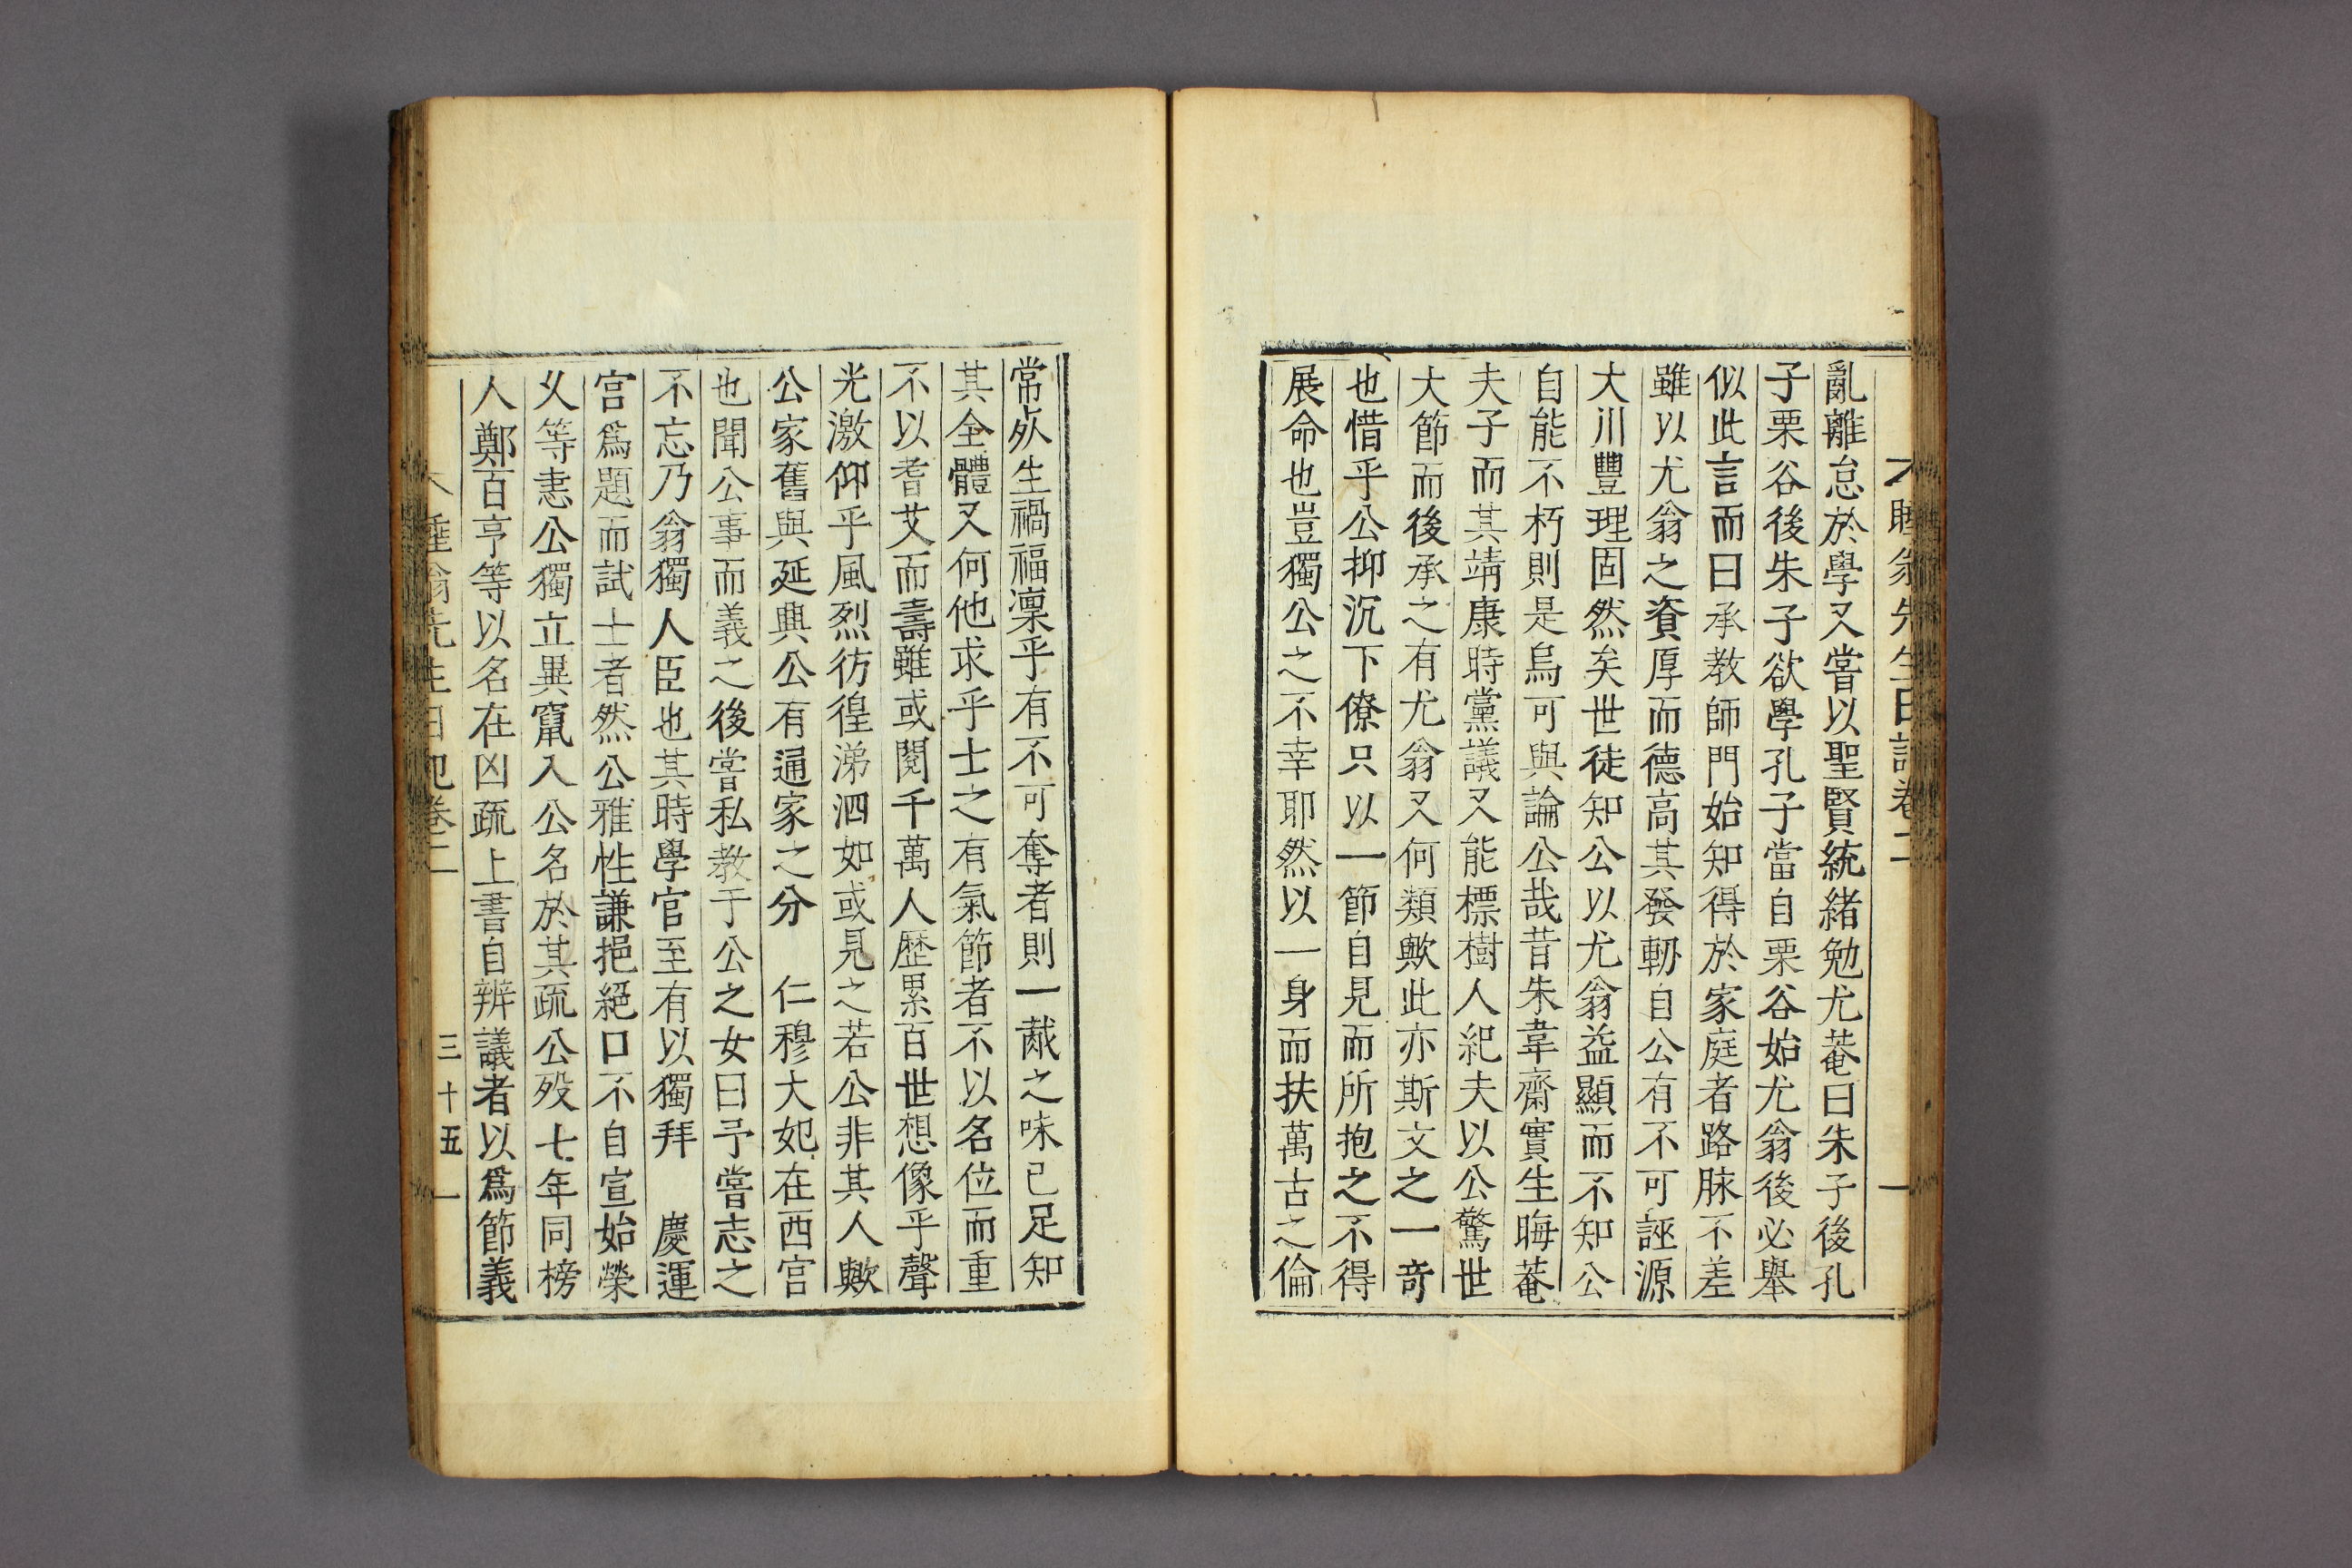 睡翁先生日記卷二
亂離怠於學又嘗以聖賢統緒勉尤菴曰朱子後孔
子栗谷後朱子欲學孔子當自栗谷始尤翁後必擧
似此言而曰承教師門始知得於家庭者路脉不差
雖以尤翁之資厚而德高其發軔自公有不可誣源
大川豐理固然矣世徒知公以尤翁益顯而不知公
自能不朽則是烏可與論公哉昔朱韋齋實生晦菴
夫子而其靖康時黨議又能標樹人紀夫以公驚世
大節而後承之有尤翁又何類歟此亦斯文之一奇
也惜乎公抑沉下僚只以一節自見而所抱之不得
展命也豈獨公之不幸耶然以一身而扶萬古之倫
常死生禍福凛乎有不可奪者則一胾之味已足知
其全體又何他求乎士之有氣節者不以名位而重
不以耆艾而壽雖或閱千萬人歷累百世想像乎聲
光激仰乎風烈彷徨涕泗如或見之若公非其人歟
公家舊與延興公有通家之分 仁穆大妃在西宮
也聞公事而義之後嘗私教于公之女曰予嘗志之
不忘乃翁獨人臣也其時學官至有以獨拜 慶運
宮爲題而試士者然公雅性謙挹絕口不自宣始榮
乂等恚公獨立異竄入公名於其疏公歿七年同榜
人鄭百亨等以名在凶疏上書自辨議者以爲節義
睡翁先生日記卷二 三十五